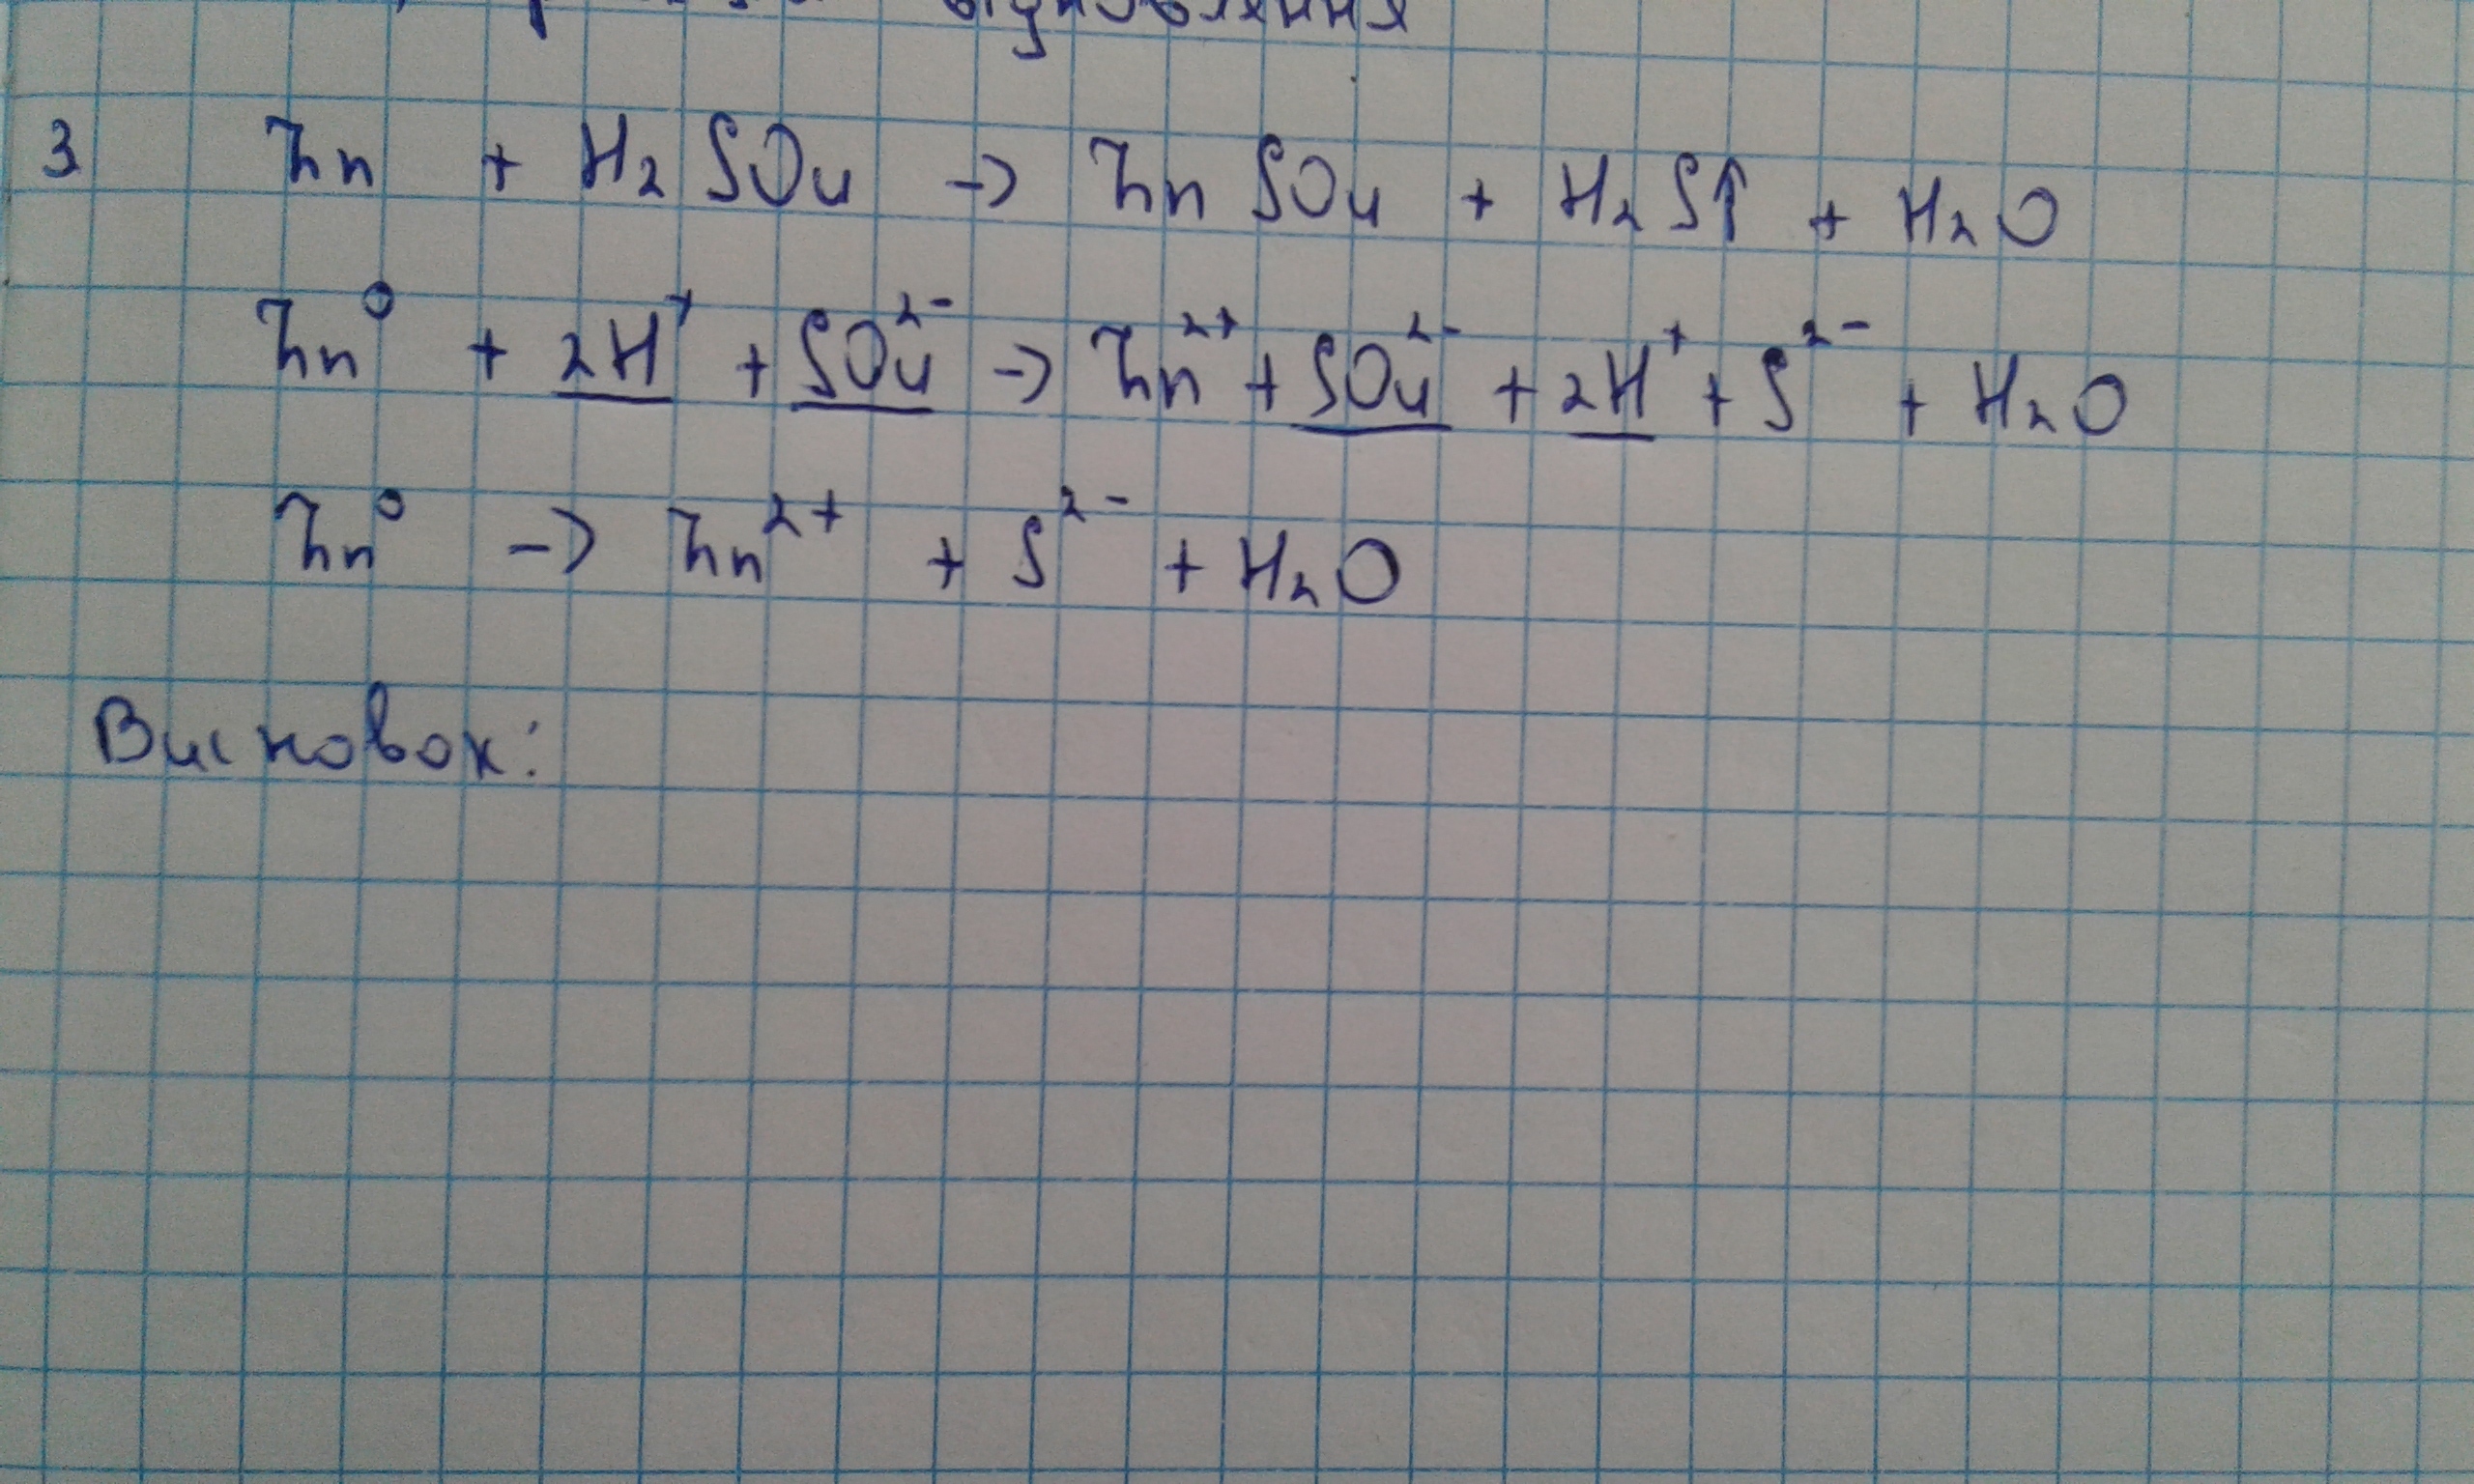 відновлення
3 Zn + H₂SO₄ → ZnSO₄ + H₂S↑ + H₂O
Zn⁰ + 2H⁺ + SO₄²⁻ → Zn²⁺ + SO₄²⁻ + 2H⁺ + S²⁻ + H₂O
Zn⁰ → Zn²⁺ + S²⁻ + H₂O
Висновок: